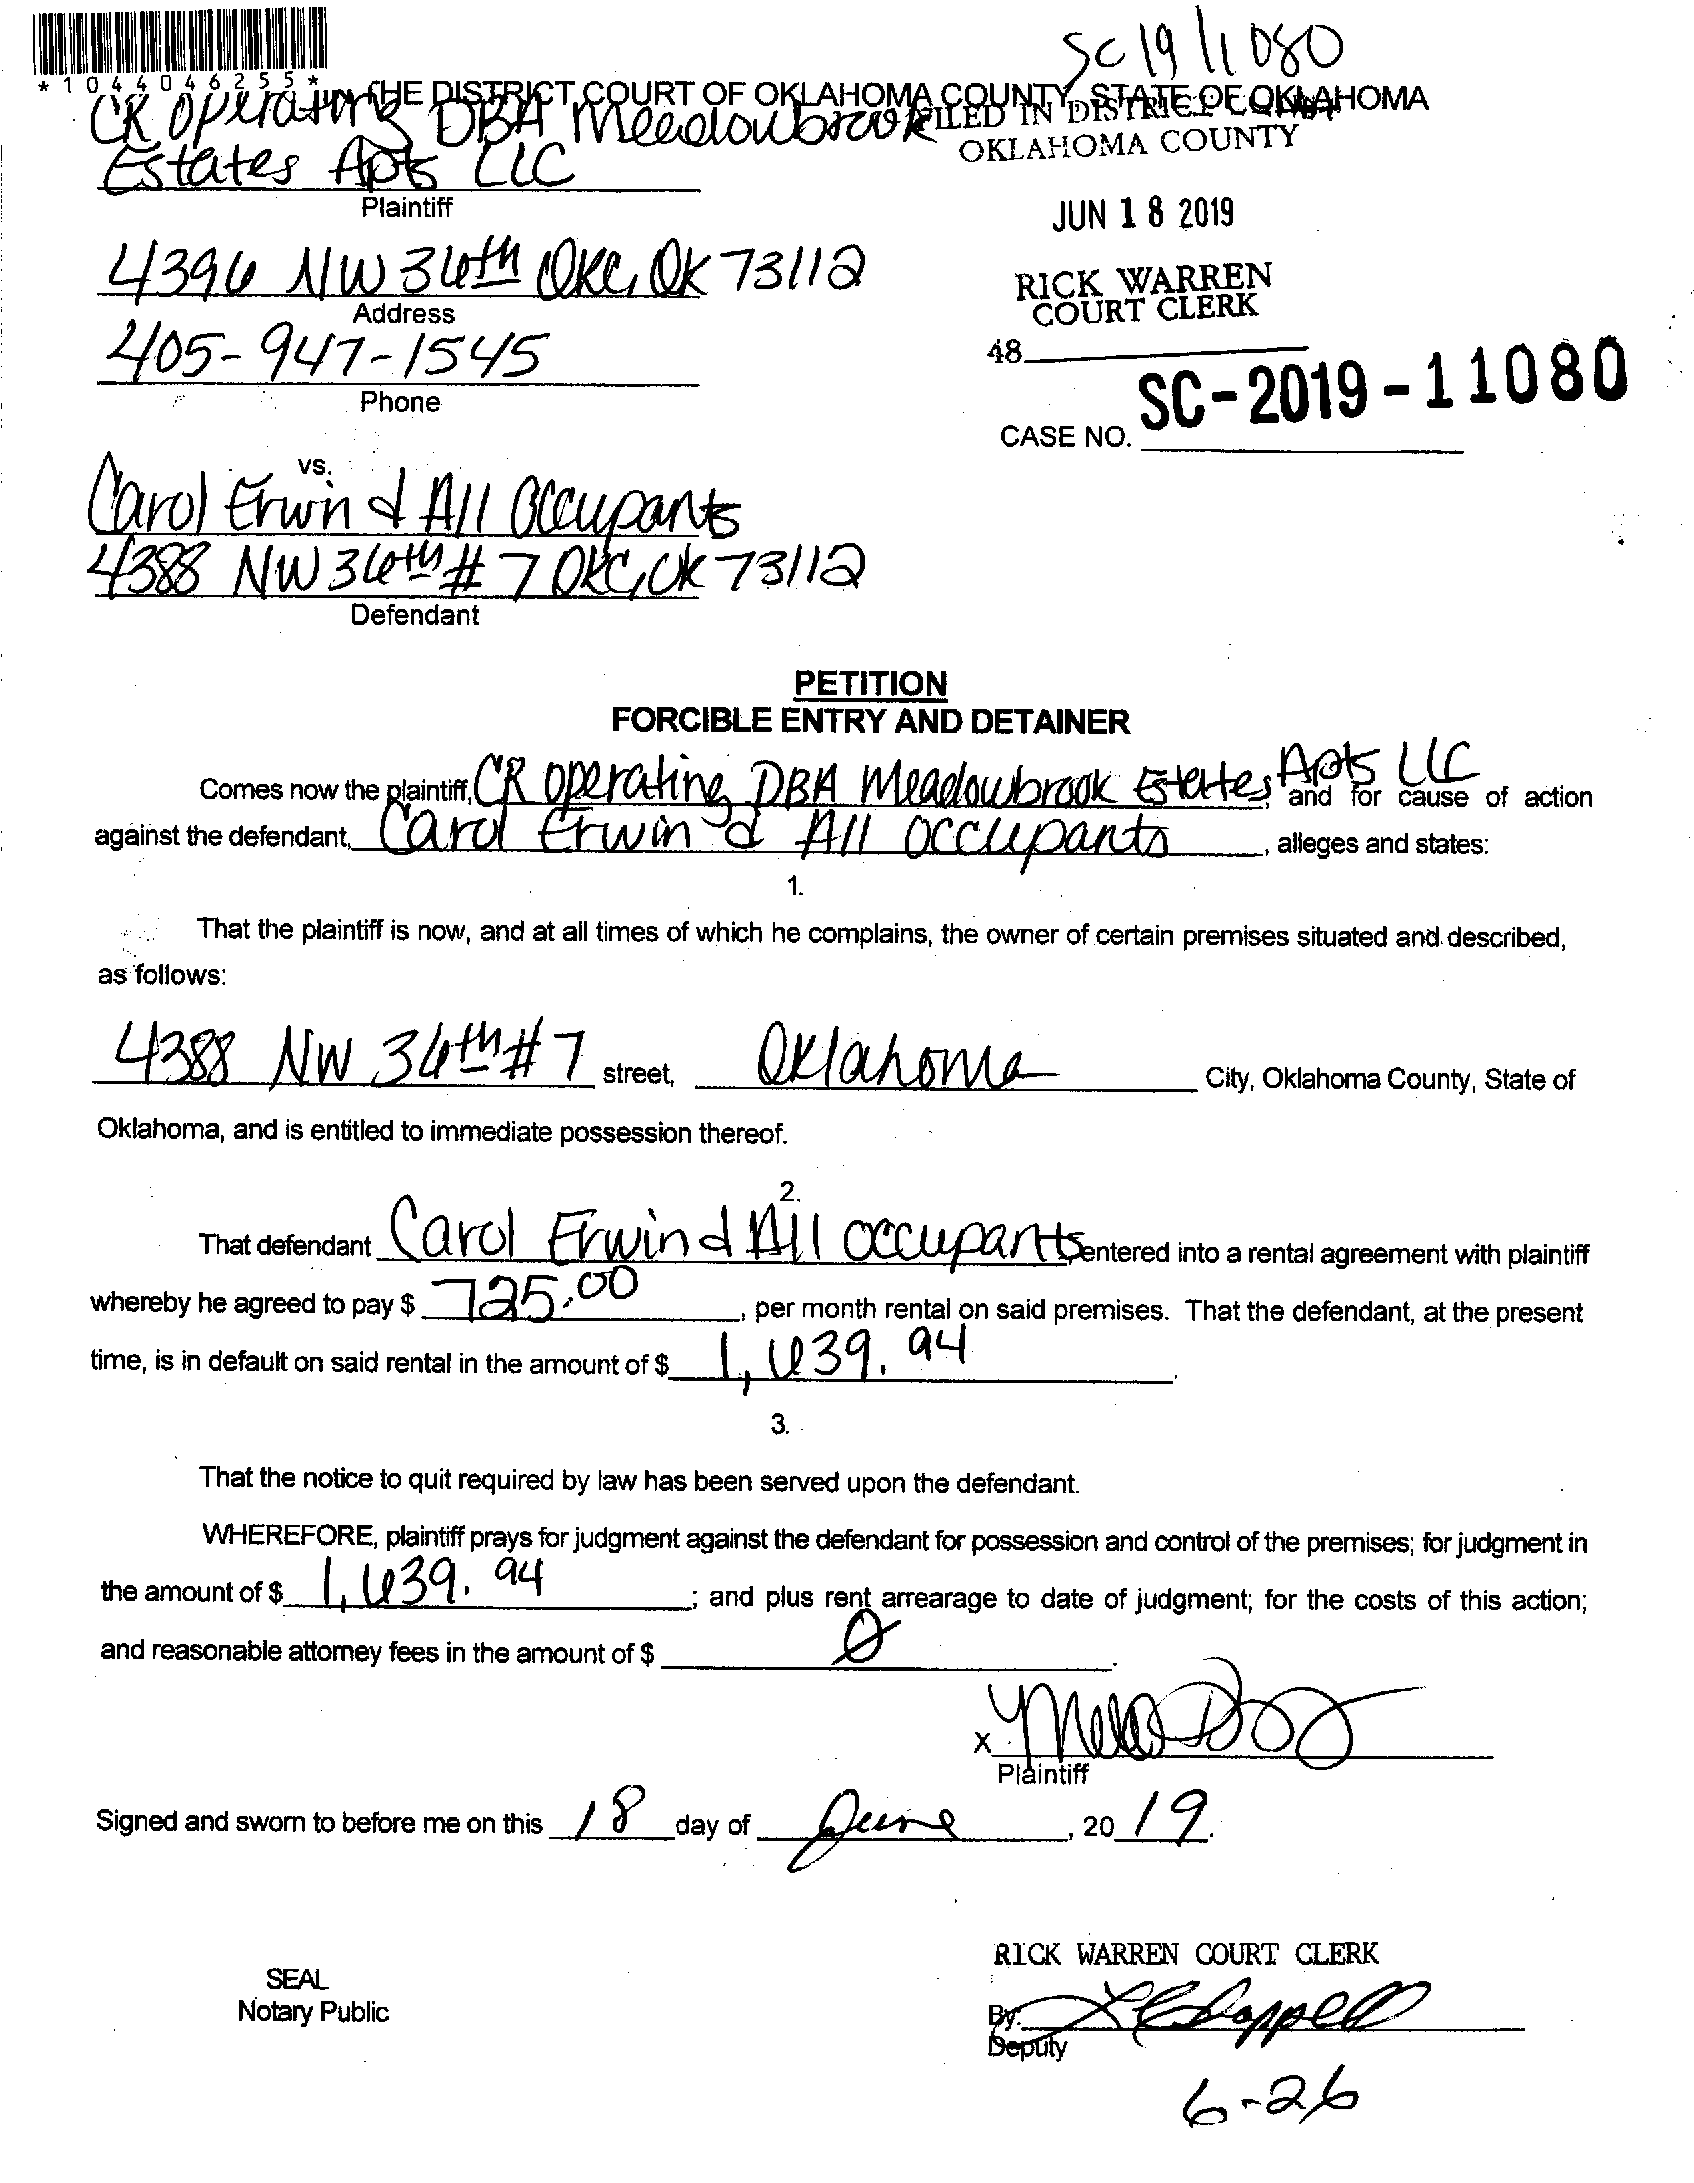 SC 19 11080
*1044046255*
IN THE DISTRICT COURT OF OKLAHOMA COUNTY, STATE OF OKLAHOMA
CR Operating DBA Meadowbrook
FILED IN DISTRICT COURT
OKLAHOMA COUNTY
Estates Apts LLC
Plaintiff
JUN 18 2019
4396 NW 36th OKC, OK 73112
Address
RICK WARREN
COURT CLERK
405-947-1545
Phone
48
SC-2019-11080
CASE NO.
vs.
Carol Erwin & All Occupants
4388 NW 36th # 7 OKC, OK 73112
Defendant
PETITION
FORCIBLE ENTRY AND DETAINER
Comes now the plaintiff, CR Operating DBA Meadowbrook Estates Apts LLC, and for cause of action
against the defendant, Carol Erwin & All Occupants, alleges and states:
1.
That the plaintiff is now, and at all times of which he complains, the owner of certain premises situated and described,
as follows:
4388 NW 36th # 7 street, Oklahoma City, Oklahoma County, State of
Oklahoma, and is entitled to immediate possession thereof.
2.
That defendant Carol Erwin & All occupants entered into a rental agreement with plaintiff
whereby he agreed to pay $ 725.00, per month rental on said premises. That the defendant, at the present
time, is in default on said rental in the amount of $ 1,639.94.
3.
That the notice to quit required by law has been served upon the defendant.
WHEREFORE, plaintiff prays for judgment against the defendant for possession and control of the premises; for judgment in
the amount of $ 1,639.94; and plus rent arrearage to date of judgment; for the costs of this action;
and reasonable attorney fees in the amount of $ 0.
X
Plaintiff
Signed and sworn to before me on this 18 day of June, 2019.
RICK WARREN COURT CLERK
SEAL
Notary Public
By:
Deputy
6-26